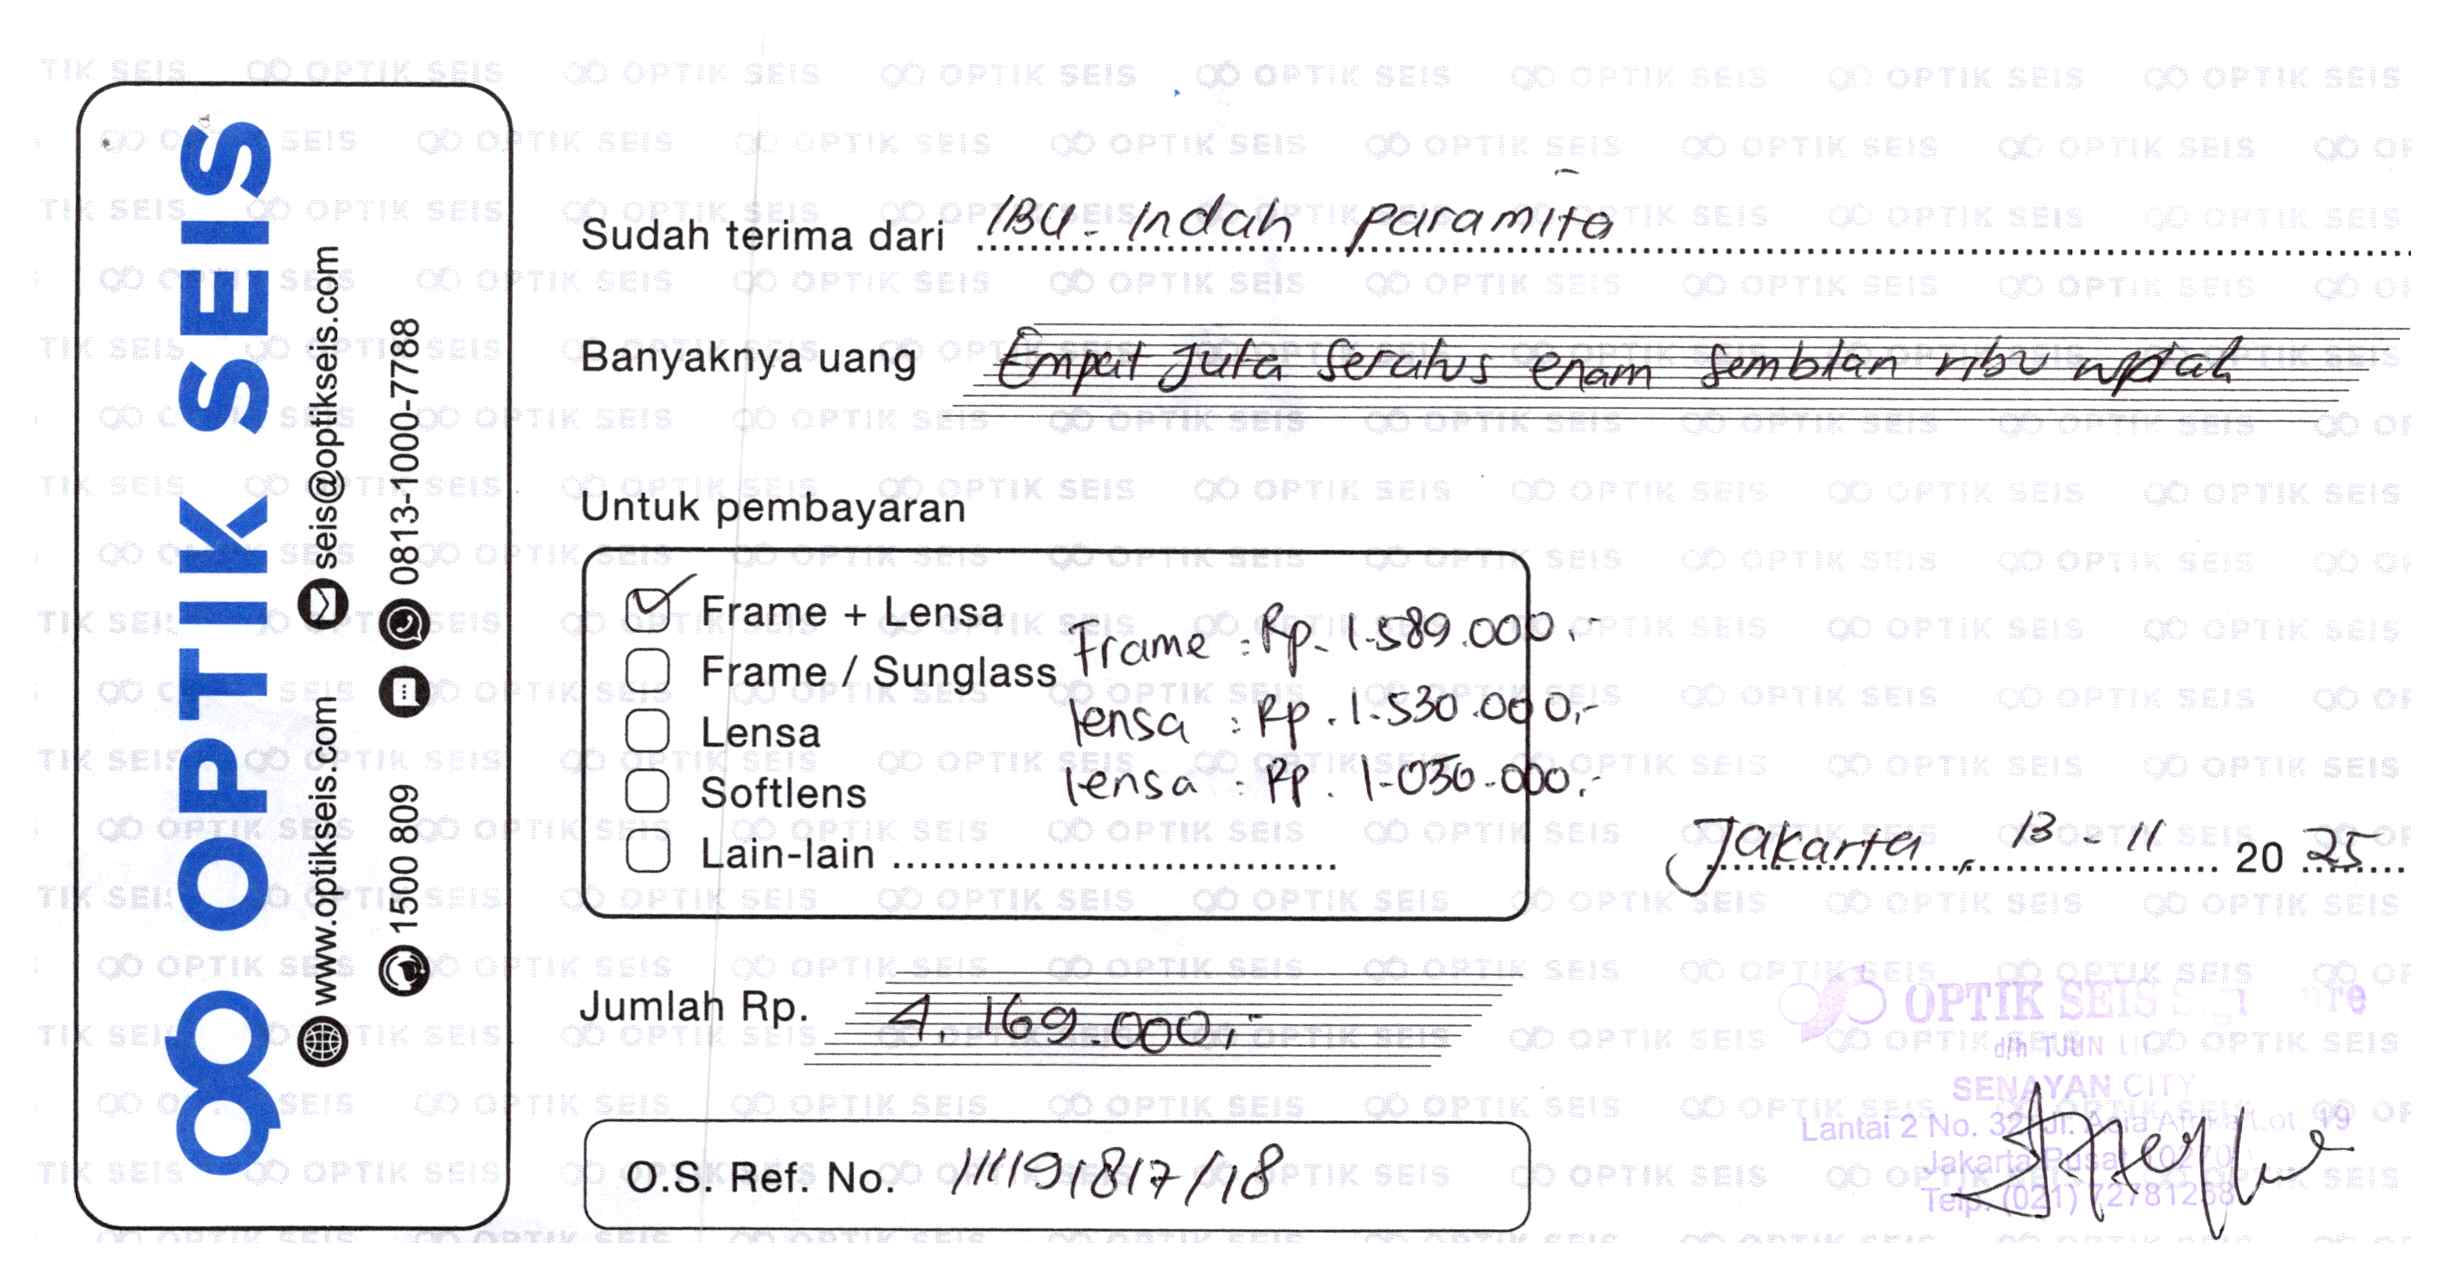 OPTIK SEIS
www.optikseis.com seis@optikseis.com
1500 809 0813-1000-7788
Sudah terima dari IBU. Indah paramita
Banyaknya uang Empat Juta Seratus enam Semblan ribu rupiah
Untuk pembayaran
Frame + Lensa
Frame : Rp. 1.589.000.-
Frame / Sunglass
lensa : Rp. 1.530.000,-
Lensa
lensa : Rp. 1.050.000,-
Softlens
Lain-lain
Jakarta, 13 - 11 2025
Jumlah Rp. 4.169.000,-
OPTIK SEIS
d/h TJUN
SENAYAN CITY
Lantai 2 No. 32, Jl. Asia Afrika Lot. 19
Jakarta Pusat
Telp. (021) 72781238
O.S. Ref. No. 111191817/18